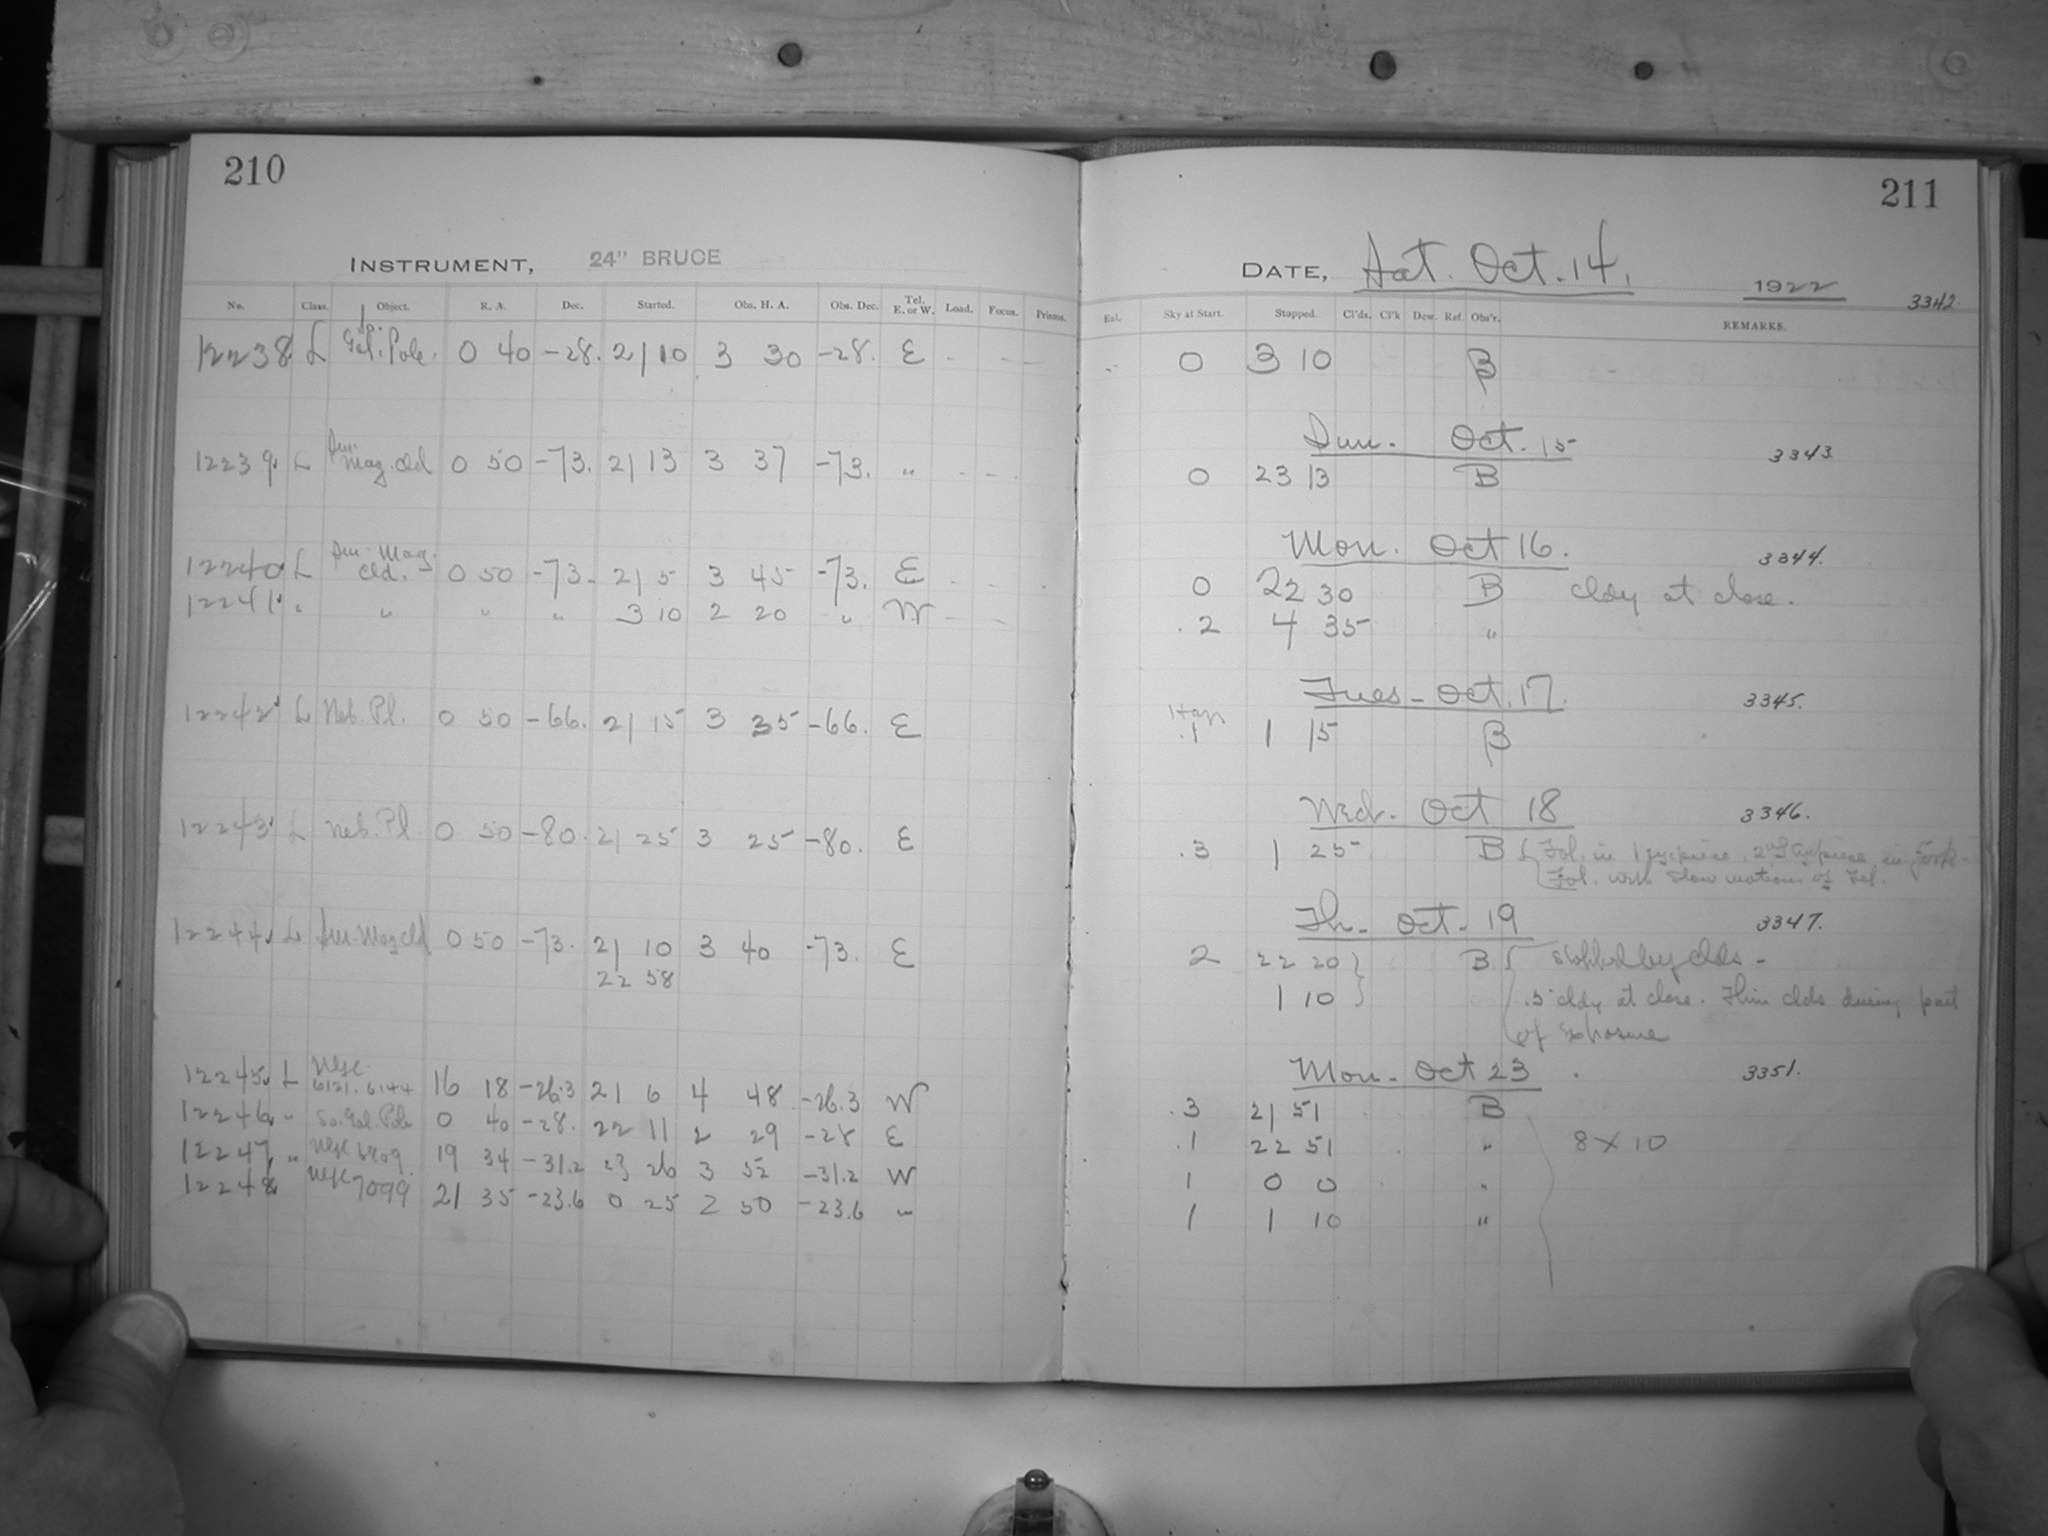 210
INSTRUMENT, 24" BRUCE
No. Class. Object. R. A. Dec. Started. Obs. H. A. Obs. Dec. Tel. E. or W. Load. Focus. Prisms.
12238 L Gal. Pole. 0 40 -28. 21 10 3 30 -28. E
12239 L Sm. Mag. Cld 0 50 -73. 21 13 3 37 -73. "
12240 L Sm. Mag. Cld. 0 50 -73. 21 5 3 45 -73. E
12241 " " " " 3 10 2 20 " W
12242 L Neb. Pl. 0 50 -66. 21 15 3 35 -66. E
12243 L Neb. Pl. 0 50 -80. 21 25 3 25 -80. E
12244 L Sm. Mag Cld 0 50 -73. 21 10 3 40 -73. E
22 58
12245 L NGC. 6121. 6144 16 18 -26.3 21 6 4 48 -26.3 W
12246 " So. Gal. Pole 0 40 -28. 22 11 2 29 -28 E
12247 " NGC 6809 19 34 -31.2 23 26 3 52 -31.2 W
12248 NGC 7099 21 35 -23.6 0 25 2 50 -23.6 "
211
DATE, Sat. Oct. 14, 1922 3342
Eul. Sky at Start. Stopped. Cl'ds. Cl'k Dew. Ref. Obs'r. REMARKS.
0 3 10 B
Sun. Oct. 15 3343
0 23 13 B
Mon. Oct 16. 3344.
0 22 30 B cldy at close.
.2 4 35 "
Tues- Oct. 17. 3345.
Hazy
.1 1 15 B
Wed. Oct 18 3346.
.3 1 25 B Fol. in 1 eyepiece, 2nd eyepiece in
Fol. with slow motion of Tel.
Th. Oct. 19 3347.
2 22 20 B stopped by clds -
1 10 .5 cldy at close. Thin clds during part
of exposure
Mon. Oct 23 3351.
.3 21 51 B
.1 22 51 " 8 X 10
1 0 0 "
1 1 10 "